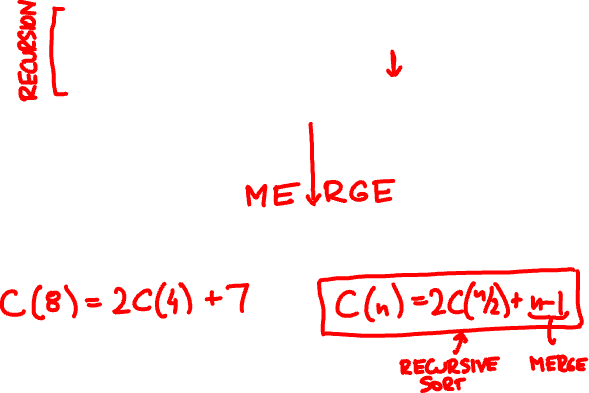 RECURSION
MERGE
C(8) = 2C(4) + 7
C(n) = 2C(n/2) + n-1
RECURSIVE SORT
MERGE